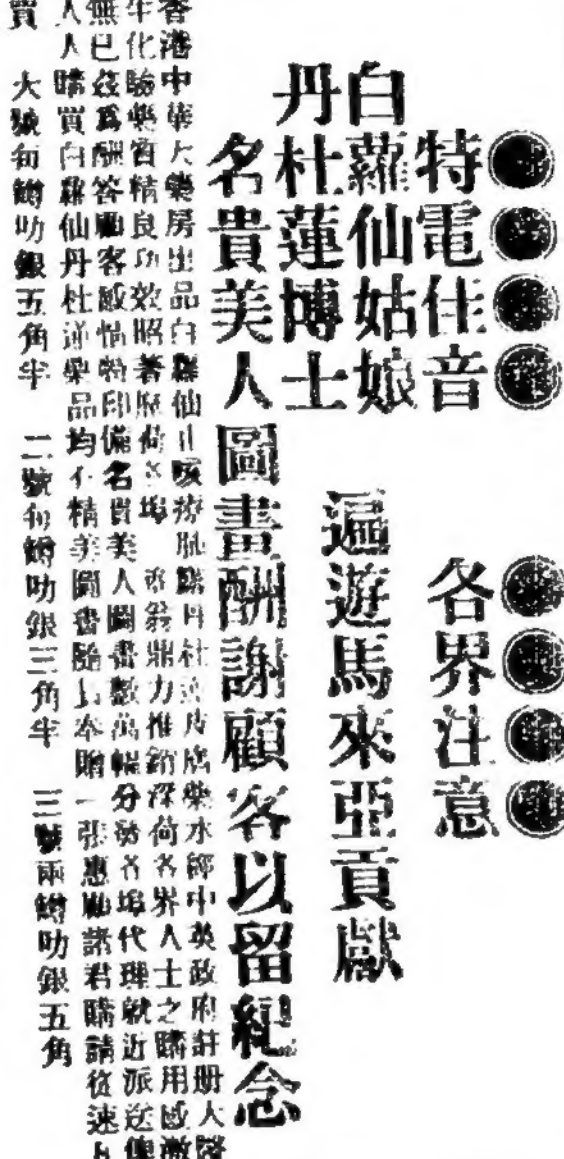 特電佳音 各界注意
白蘿仙姑娘
丹杜蓮博士 遍遊馬來亞貢獻
名貴美人圖畫酬謝顧客以留紀念
香港中華大藥房出品白蘿仙止咳療肺露丹杜蓮片戒藥水經中英政府註册大醫
生化驗藥質精良功效昭著歷荷各埠 鼎力推銷深荷各界人士之購用感激
無已玆爲酬答顧客感情特印備名貴美人圖畫數萬幅分發各埠代理就近派送
人人購買白蘿仙丹杜蓮藥品均有精美圖畫隨奉贈一張惠顧諸君購請從速
買 大號每罇叻銀五角半 二號每罇叻銀三角半 三號兩罇叻銀五角